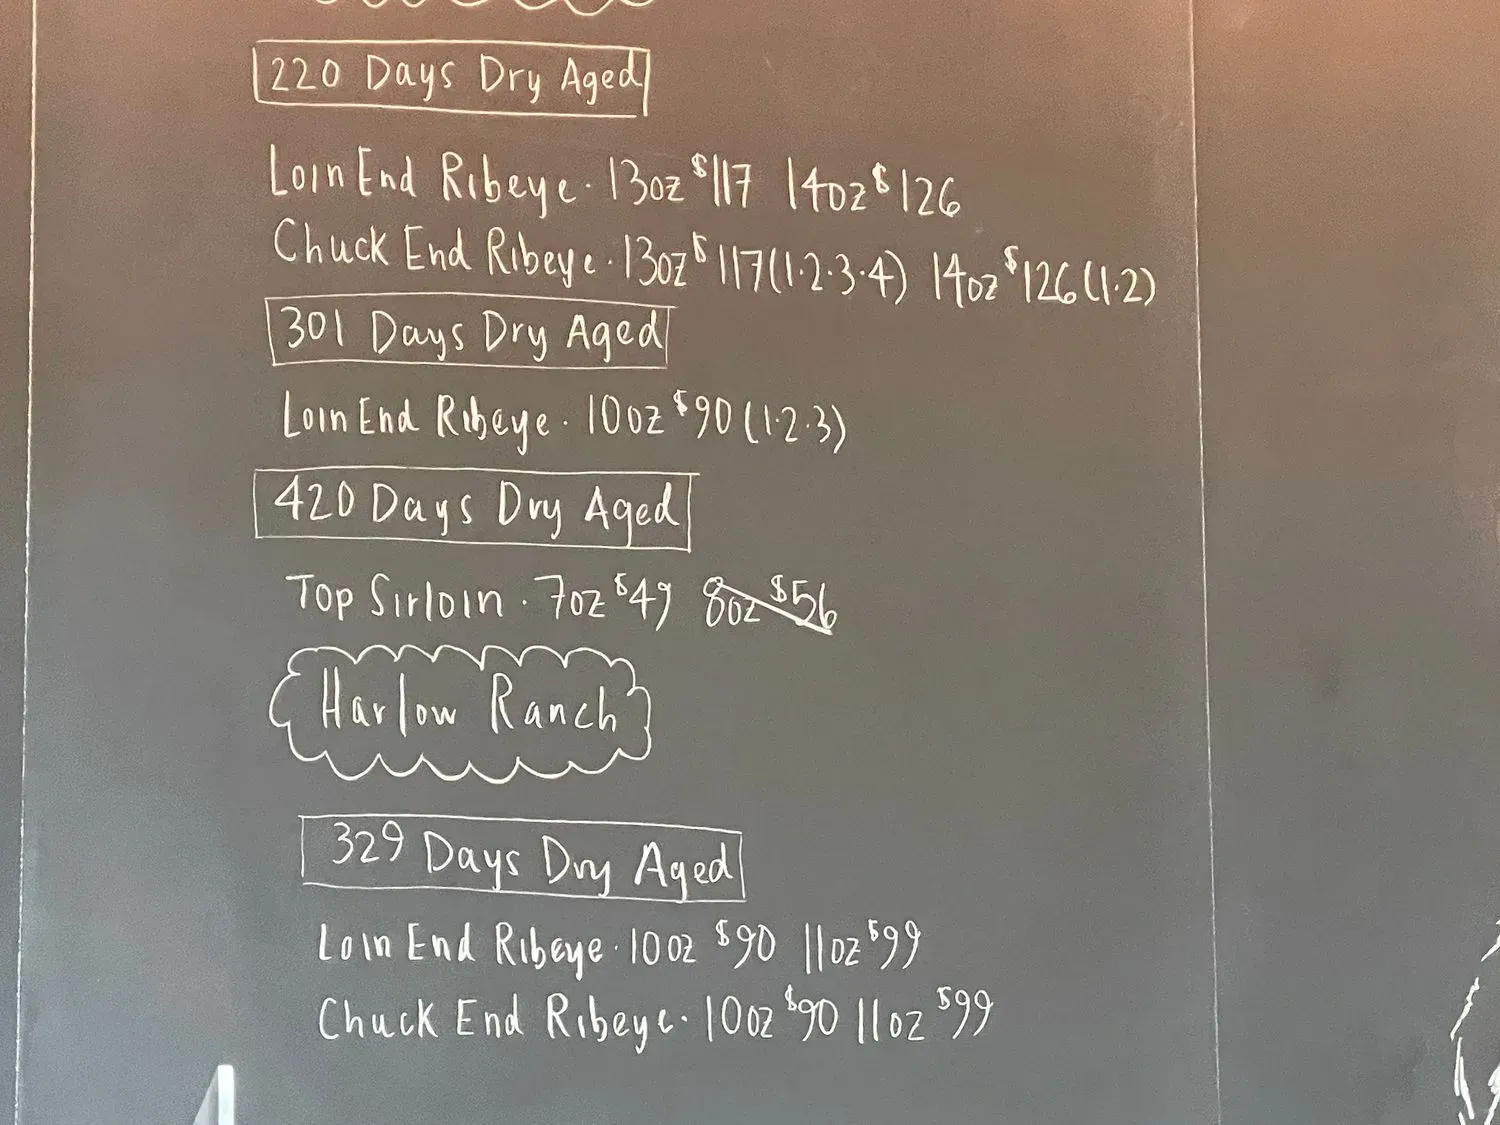 220 Days Dry Aged
Loin End Ribeye · 13oz $117 14oz $126
Chuck End Ribeye · 13oz $117 (1·2·3·4) 14oz $126 (1·2)
301 Days Dry Aged
Loin End Ribeye · 10oz $90 (1·2·3)
420 Days Dry Aged
Top Sirloin · 7oz $49 8oz $56
Harlow Ranch
329 Days Dry Aged
Loin End Ribeye · 10oz $90 11oz $99
Chuck End Ribeye · 10oz $90 11oz $99